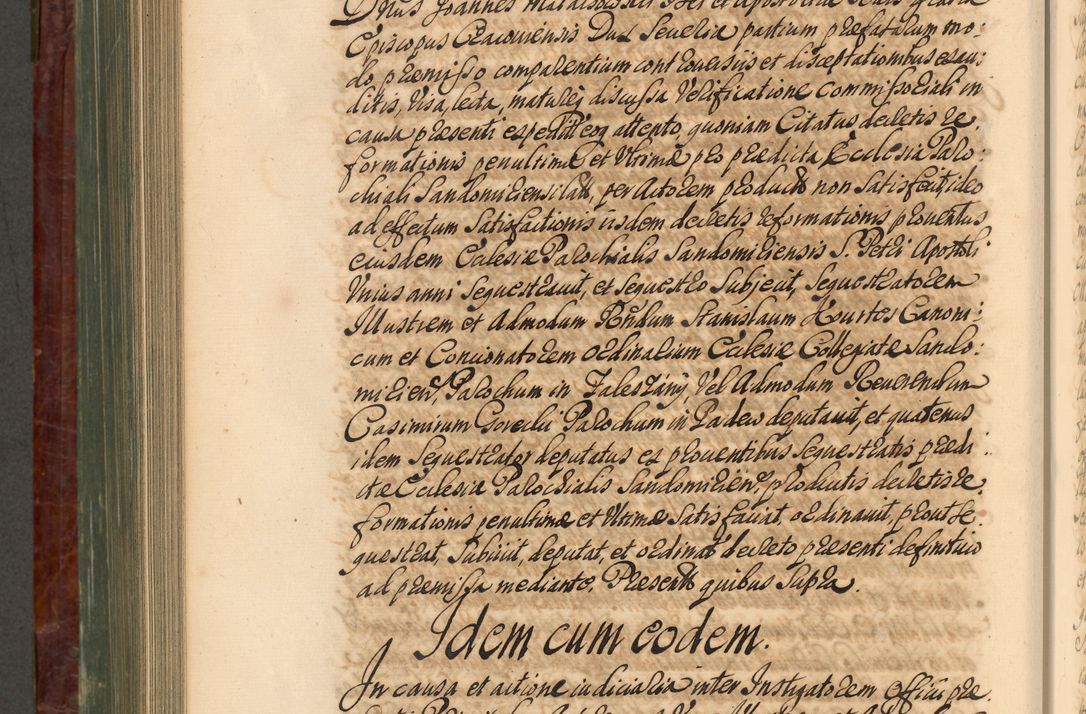 Dnus Joannes
Episcopus Cracoviensis Dux Severiæ partium præfatarum mo:
do præmisso comparentium controversiis et disceptationibus exau:
ditis, visa, lecta, matureq discussa Verificatione Commissoriali in
causa præsenti expedit eoq attento, quoniam Citatus decretis re:
formationis penultimæ et Ultimæ pro prædicta Ecclesia Paro:
chiali Sandomiriensi latis, per Actorem productis non satisfecit, ideo
ad effectum satisfactionis iisdem decretis reformationis proventus
eiusdem Ecclesiæ Parochialis Sandomiriensis S. Petri Apostoli
Unius anni sequestravit, et sequestro subjecit, sequestratorem
Illustrem et Admodum Rndum Stanislaum Hourtes Canoni:
cum et Concionatorem ordinarium Ecclesiæ Collegiatæ Sando:
mirien, Parochum in Zaleszany, Vel Admodum Reverendum
Casimirum Parochum in deputavit, et quatenus
idem sequestrator deputatus ex proventibus sequestratis prædi:
ctæ Ecclesiæ Parochialis Sandomirien, productis decretis re:
formationis penultimæ et Ultimæ satisfaciat, ordinavit, prout se:
questrat, subiicit, deputat, et ordinat decreto præsenti definitivo
ad præmissa mediante. Præsentibus quibus supra.
Idem cum eodem.
In causa et actione iudiciaria inter Instigatorem Officii præ